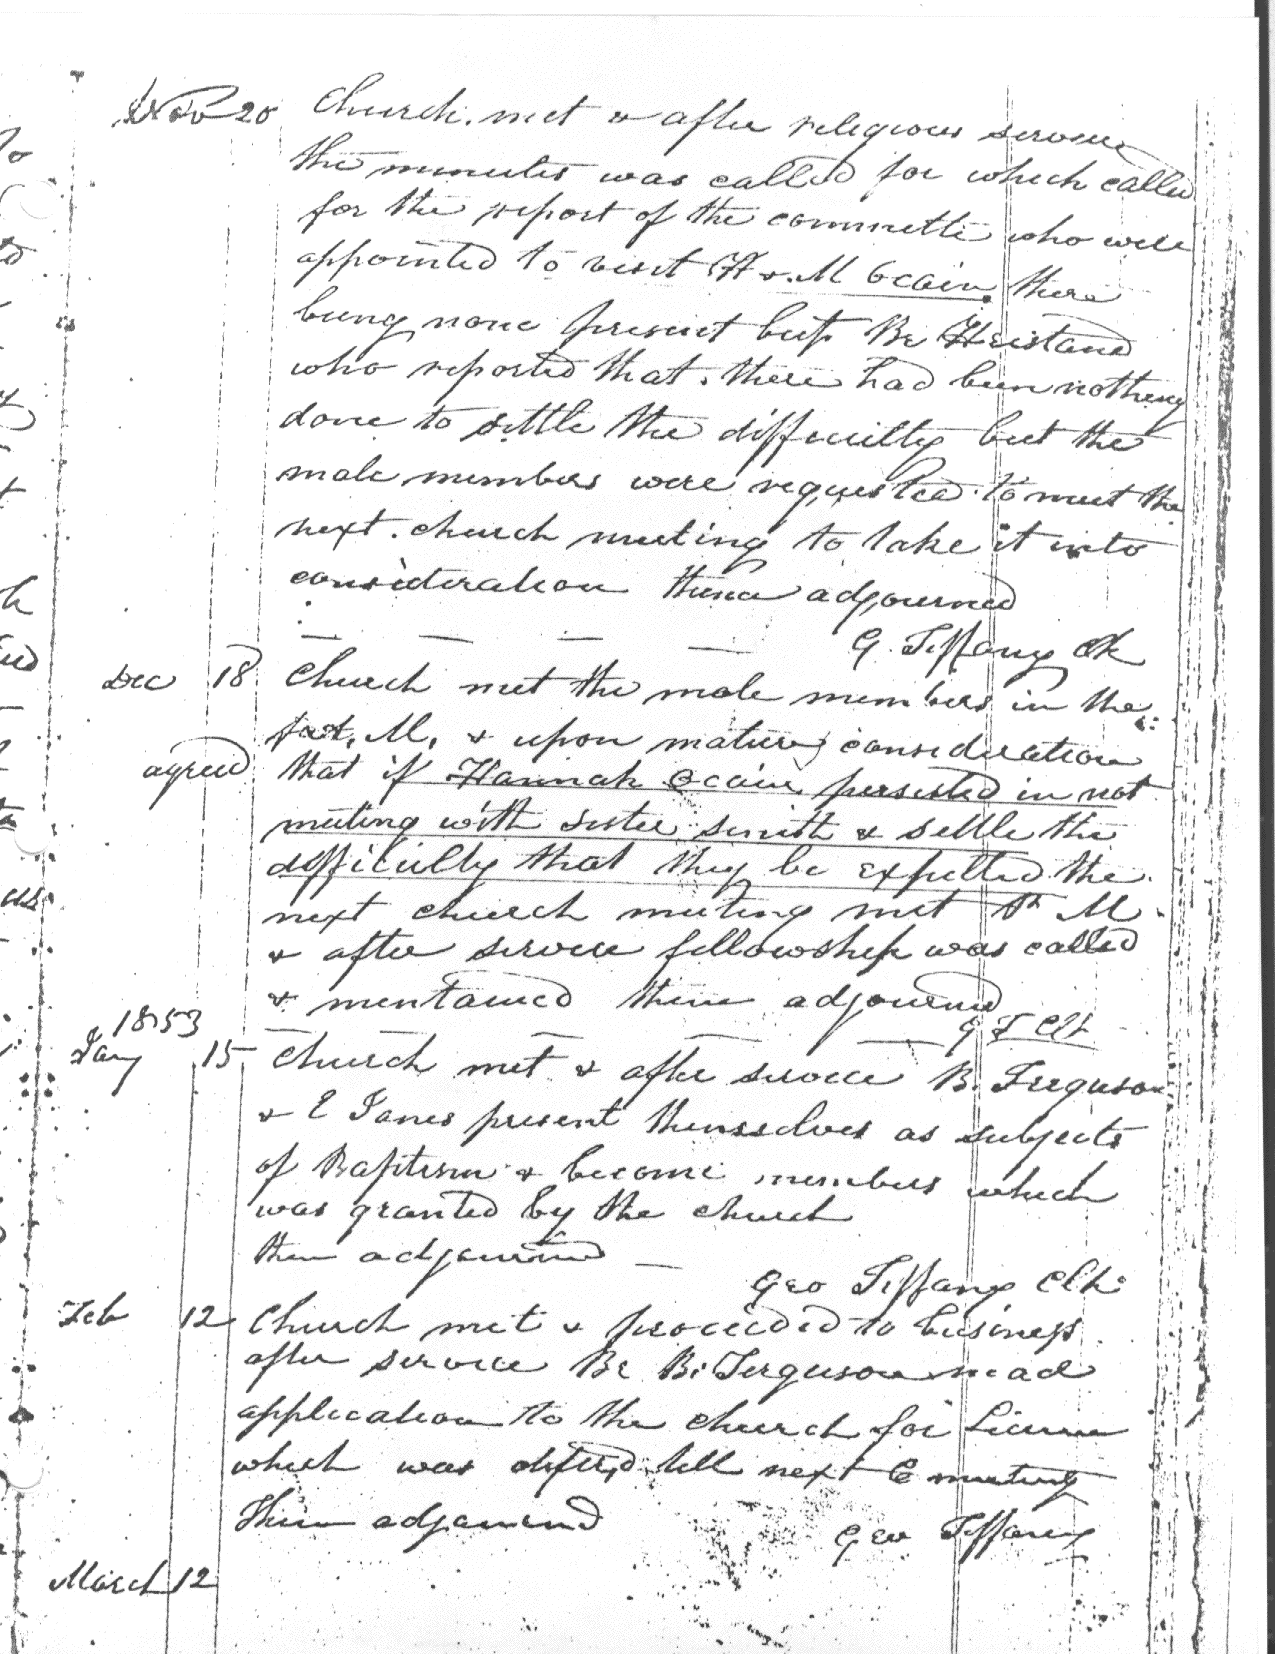 Nov 20 Church. met & after religious service
the minutes was called for which called
for the report of the committe who were
appointed to visit H & M Ocain. there
being none present but Br Heistand
who reported that. there had been nothing
done to settle the difficulty but the
male members were requested to meet the
next. church meeting to take it into
consideration thence adjourned
G. Tiffany Clk
Dec 18 Church met the male members in the
M. & upon mature consideration
agreed that if Hannah Ocain persisted in not
meeting with sister smith & settle the
difficulty that they be expelled the
next church meeting met M
& after service fellowship was called
& mentained then adjourned
G T Clk
1853
Jany 15 Church met & after service B. Ferguson
& E Janes present themsselves as subjects
of Baptism & become members which
was granted by the church
then adjourned
Geo Tiffany Clk
Feb 12 Church met & proceeded to business
after service Br B. Ferguson mad
application to the church for License
which was defered till next C meeting
then adjourned
Geo Tiffany
March 12